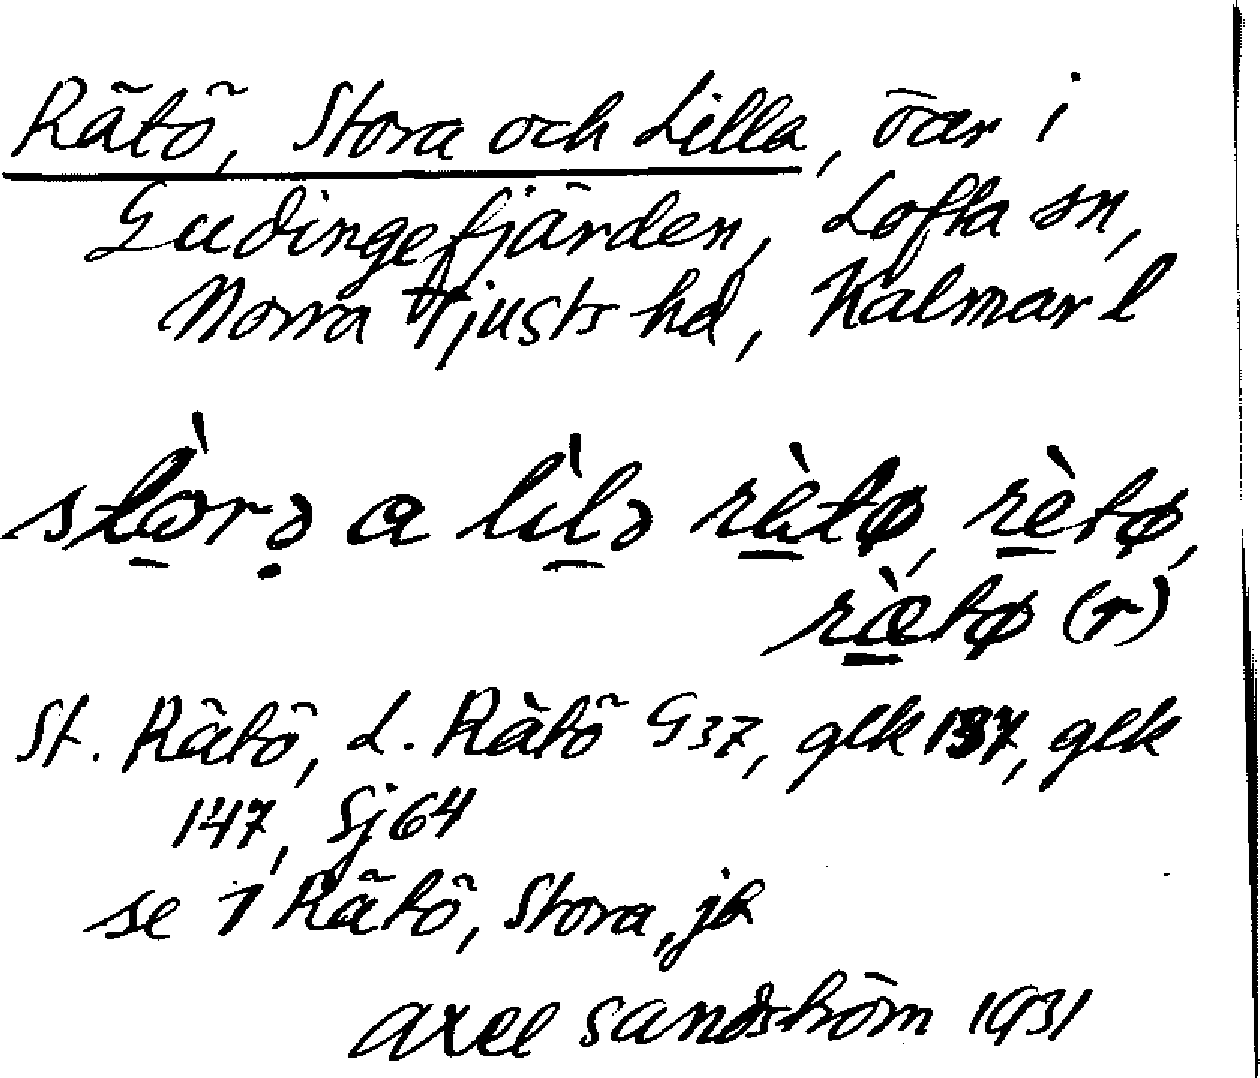 Rätö, Stora och Lilla, öar i
Gudingefjärden, Lofta sn,
Norra Tjusts hd, Kalmar l
stòrə a lìlə rètø, rètø,
ræ̀tø (r)
St. Rätö, L. Rätö G37, glk 137, glk
147, Sj64
se 1 Rätö, Stora, jb
Axel Sandström 1931